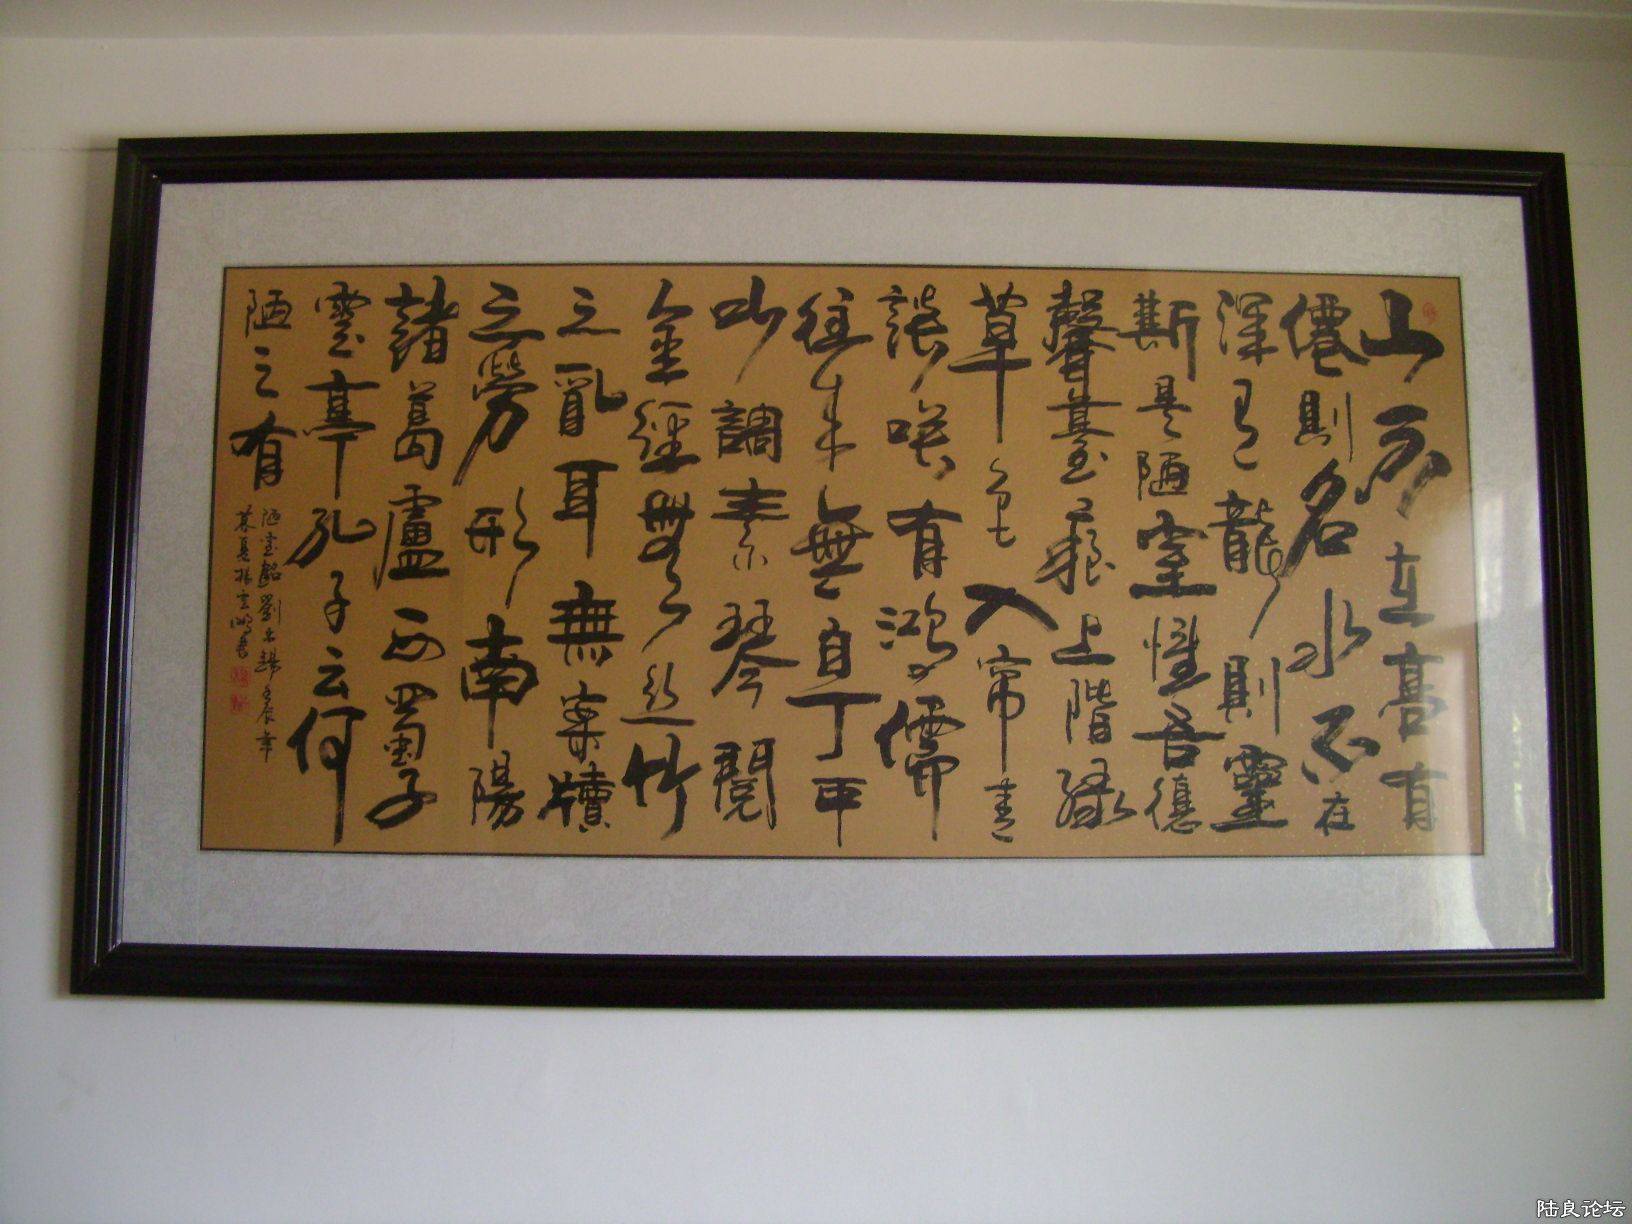 山不在高有
僊則名水不在
深有龍則靈
斯是陋室惟吾德
馨苔痕上階綠
草色入帘青
談咲有鴻儒
往来無白丁可
以調素琴閱
金經無絲竹
之亂耳無案牘
之勞形南陽
諸葛廬西蜀子
雲亭孔子云何
陋之有
陋室銘劉禹錫壬辰年
暮夏楊云鴻書
陆良论坛